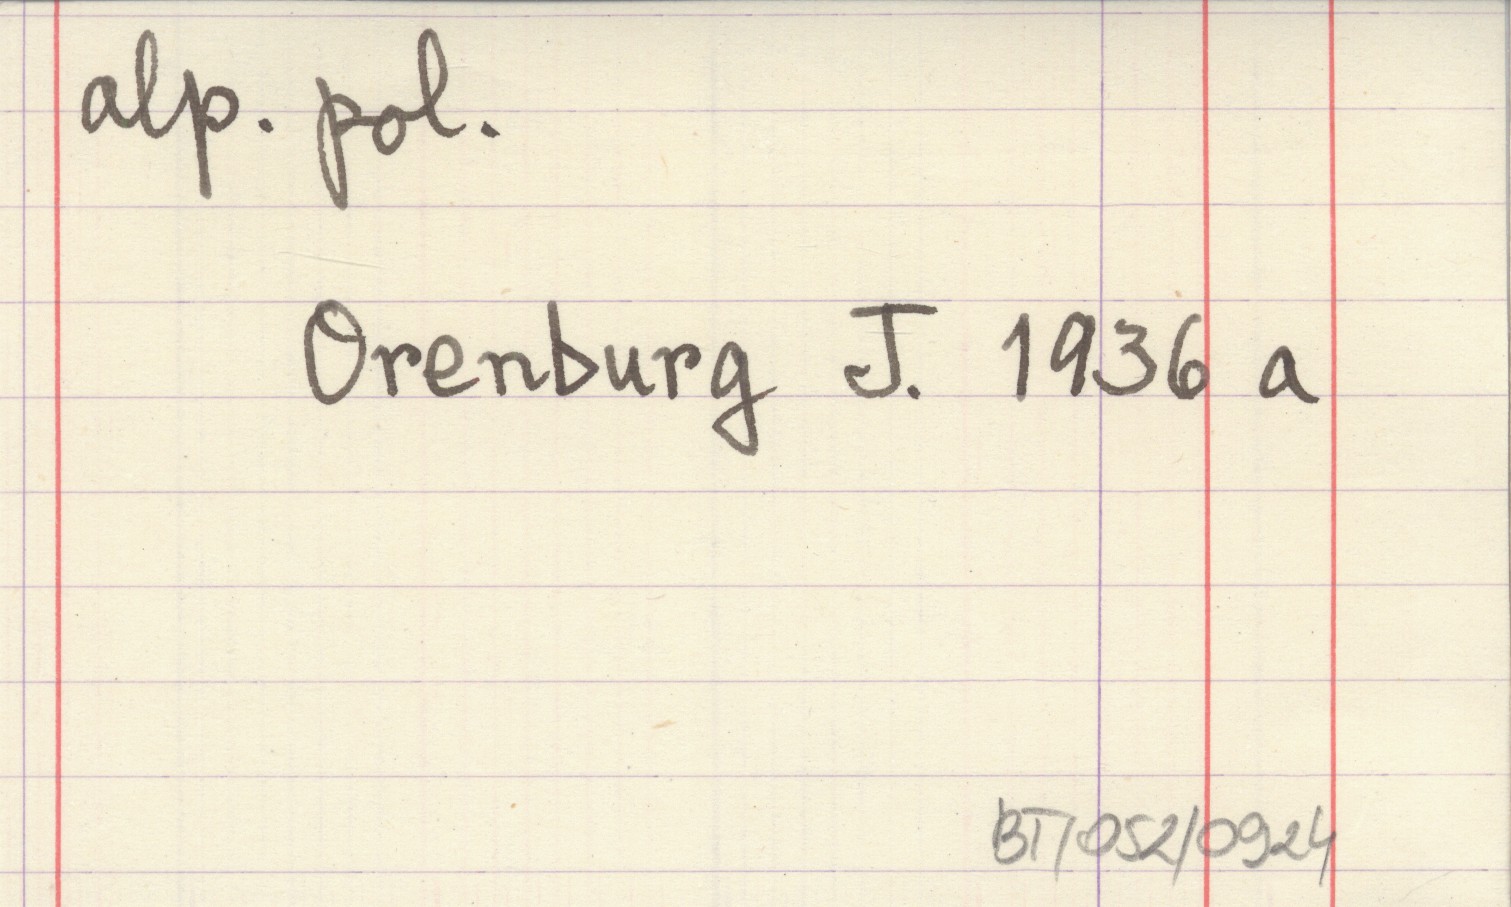 alp. pol.
Orenburg J. 1936 a
BT/052/0924